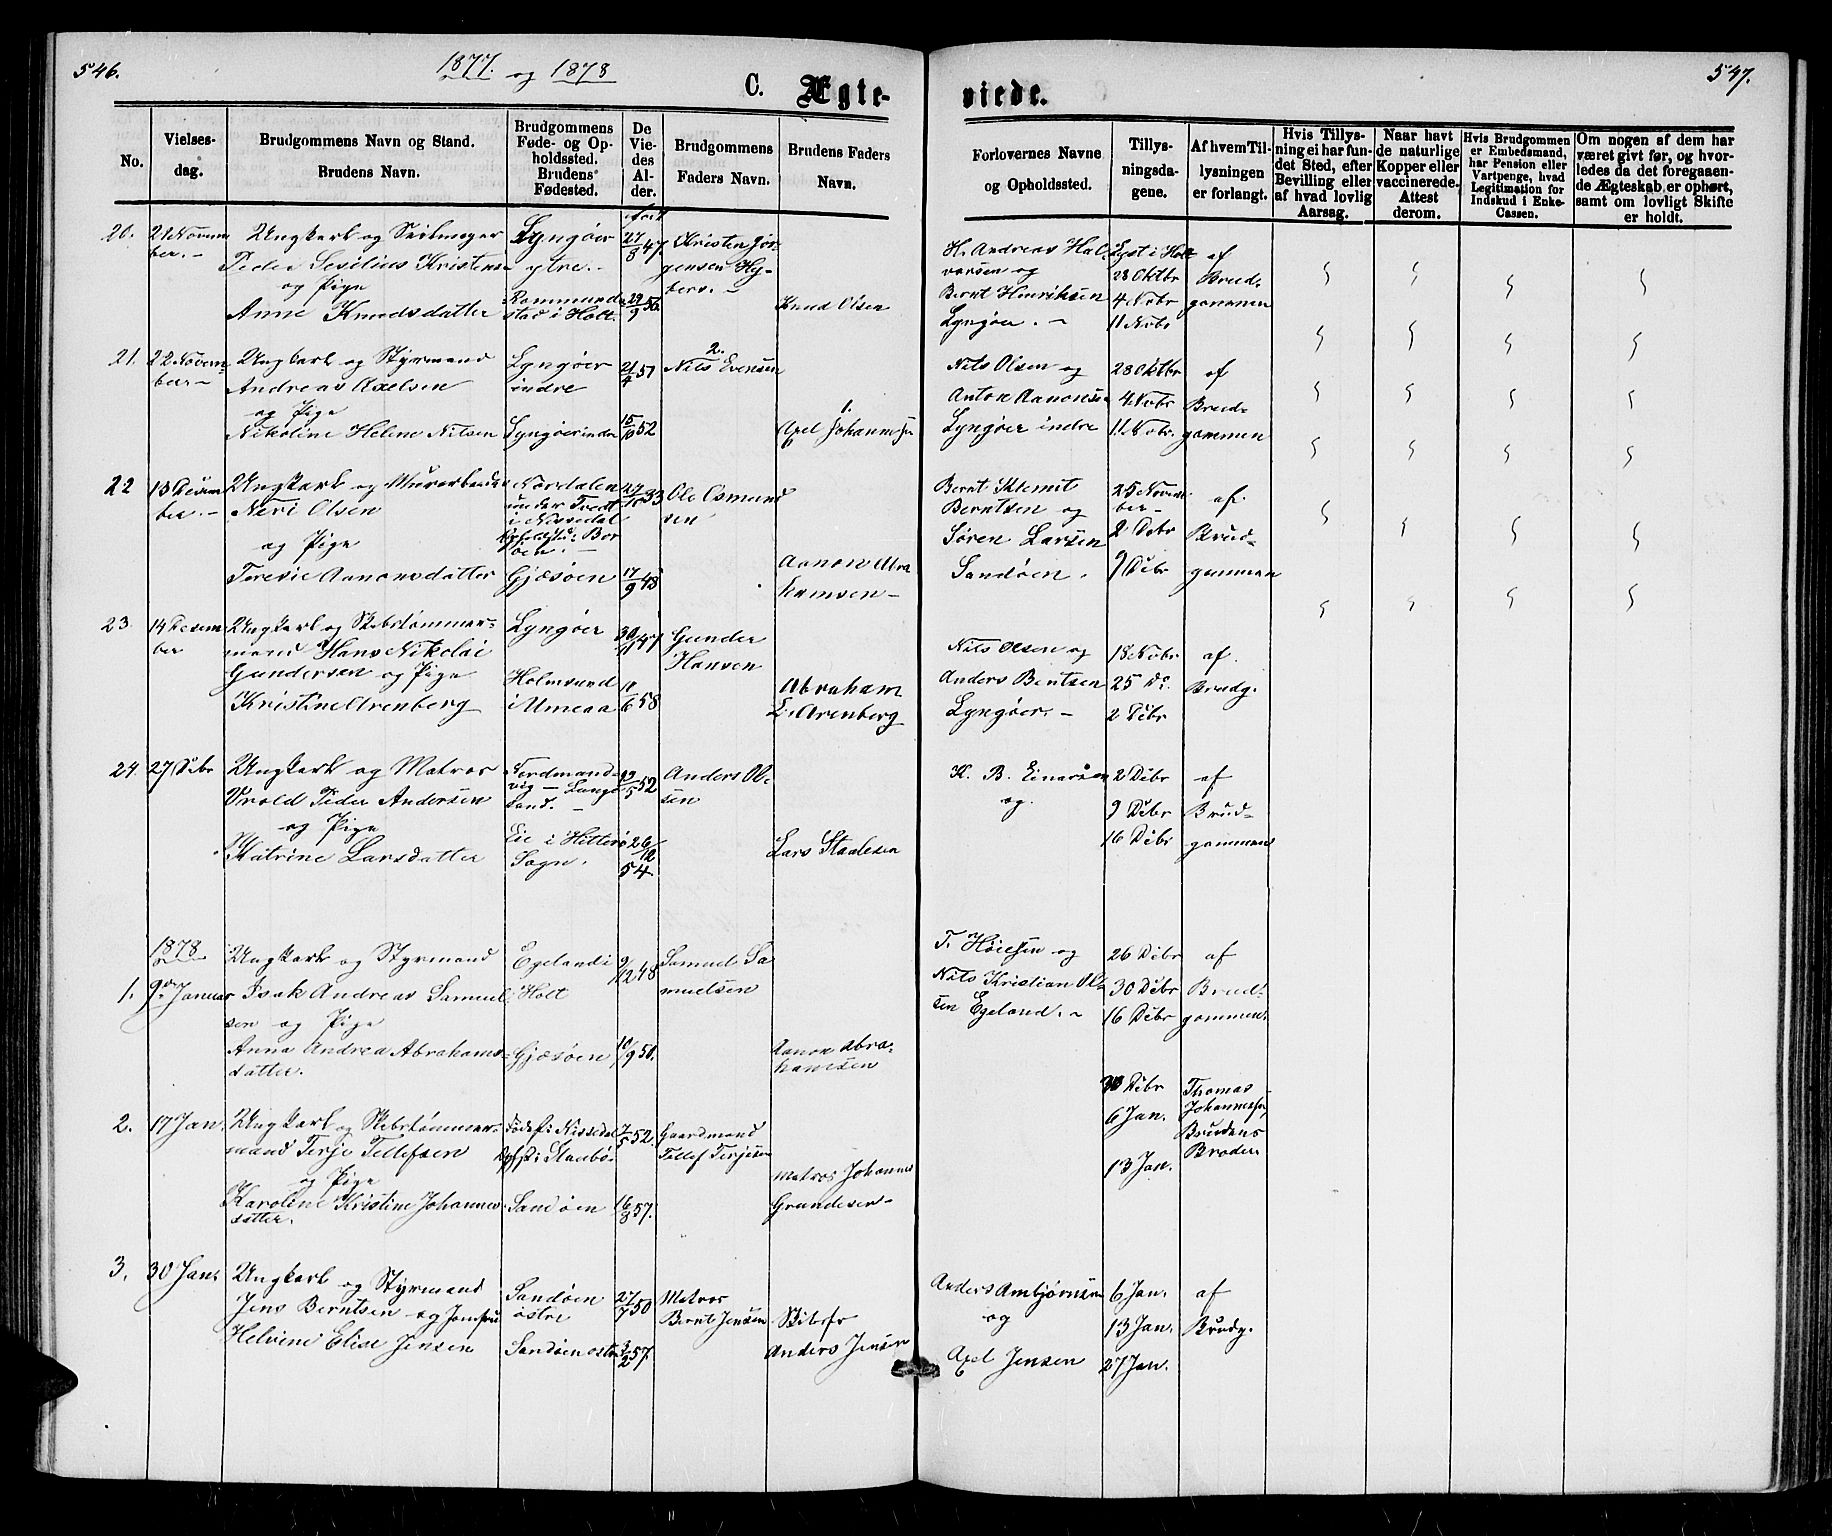 546.
1877. og 1878
C. Ægte-
viede.
547.
No.
Vielses-
dag.
Brudgommens Navn og Stand.
Brudens Navn.
Brudgommens
Føde- og Op-
holdssted.
Brudens
Fødested.
De
Vie-
des
Al-
der.
Brudgommens
Faders Navn.
Brudens Faders
Navn.
Forlovernes Navne
og Opholdssted.
Tillys-
ningsda-
gene.
Af hvem Til-
lysningen
er forlangt.
Hvis Tillys-
ning ei har fun-
det Sted, efter
Bevilling eller
af hvad lovlig
Aarsag.
Naar havt
de naturlige
Kopper eller
vaccinerede.
Attest
derom.
Hvis Brudgommen
er Embedsmand,
har Pension eller
Vartpenge, hvad
Legitimation for
Indskud i Enke-
Cassen.
Om nogen af dem har
været givt før, og hvor-
ledes da det foregaaen-
de Ægteskab er ophørt,
samt om lovligt Skifte
er holdt.
20.
21 Novem
ber. -
Ungkarl og Seilmager
Peder Sesilius Kristens
og Pige
Anne Knudsdatter
Lyngøer
ytre. -
Rommunds
stad i Holt.
27/8 47.
29/9 56.
Kristen Jør
gensen Hy-
berv. -
Knud Olsen
H. Andreas Hal
vorsen og
Bernt Henriksen
Lyngøer. -
Lyst i Holt
28 Oktbr
4 Nobr
11 Nobr
af
Brud-
gommen
21.
22 Novem
ber -
Ungkarl og Styrmand
Andreas Axelsen
og Pige
Nikoline Helene Nilsen
Lyngøer
indre
Lyngøer indre
21/4 51
15/10 52
2.
Nils Evensen
1.
Axel Johannesen
Nils Olsen og
Anton Aanonsen
Lyngøer indre
28 Oktbr
4 Nobr
11 Nobr.
af
Brud-
gommen
22
13 Desem
ber. -
Ungkarl og Murarbeider
Neri Olsen
og Pige
Teresie Aanonsdatter
Nordalen
under Tvedt
i Nissedal
Opholdsted: Bor
øen. -
Gjæsøen
33
17/9 48
Ole Osmund
sen
Aanon Abra
hamsen -
Bernt Klemet
Berntsen og
Søren Larsen
Sandøen.
25 Novem
ber -
2 Debr
9 Debr
af.
Brud-
gommen
23.
14 Desem
ber
Ungkarl og Skibstømmer-
mand Hans Nikolai
Gundersen og Pige
Kristine Arenberg
Lyngøer
Holmsund
i Umeaa
47
11/6 58
Gunder
Hansen
Abraham
L. Arenberg
Nils Olsen og
Anders Bentsen
Lyngøer. -
18 Nobr
25 Do.
2 Debr
af.
Brudg.
24.
27 Debr
Ungkarl og Matros
Vrold Peder Andersen
og Pige
Katrine Larsdatter
Nordmands
vig - Lange
sand. -
Eie i Hitterø
Sogn.
52
26/12
54.
Anders Ol-
sen
Lars Staalesen
K. B. Einersen
og.
2 Debr
9 Debr
16 Debr
af
Brud-
gommen
1878
1.
9de Januar
Ungkarl og Styrmand
Isak Andreas Samuel
sen og Pige
Anna Andrea Abrahams
datter.
Egeland i
Holt
Gjæsøen
9/12 48
10/9 50.
Samuel Sa
muelsen
Aanon Abra-
hamsen
T. Høiesen og
Nils Kristian Ol-
sen Egeland. -
26 Debr
30 Debr
16 Debr
af
Brud-
gommen.
2.
17 Jan.
Ungkarl og Skibstømmer-
mand Terje Tellefsen
og Pige
Karoline Kristine Johannes
datter.
Født i Nissedal
Opst i Staubø.
Sandøen
7/5 52.
16/8 57.
Gaardmand
Tellef Terjesen
Matros Johannes
Grundesen -
30 Debr
6 Jan.
13 Jan.
Thomas
Johannesen,
Brudens
Broder
3.
30 Jan.
Ungkarl og Styrmand
Jens Berntsen og Jomfru
Helvine Elise Jensen
Sandøen
østre
Sandøen østre
27/7 50
3/2 57.
Matros
Bernt Jensen
Skibsfr
Anders Jensen
Anders Ambjørnsen
og
Axel Jensen
6 Jan.
13 Jan.
27 Jan.
af
Brudg.